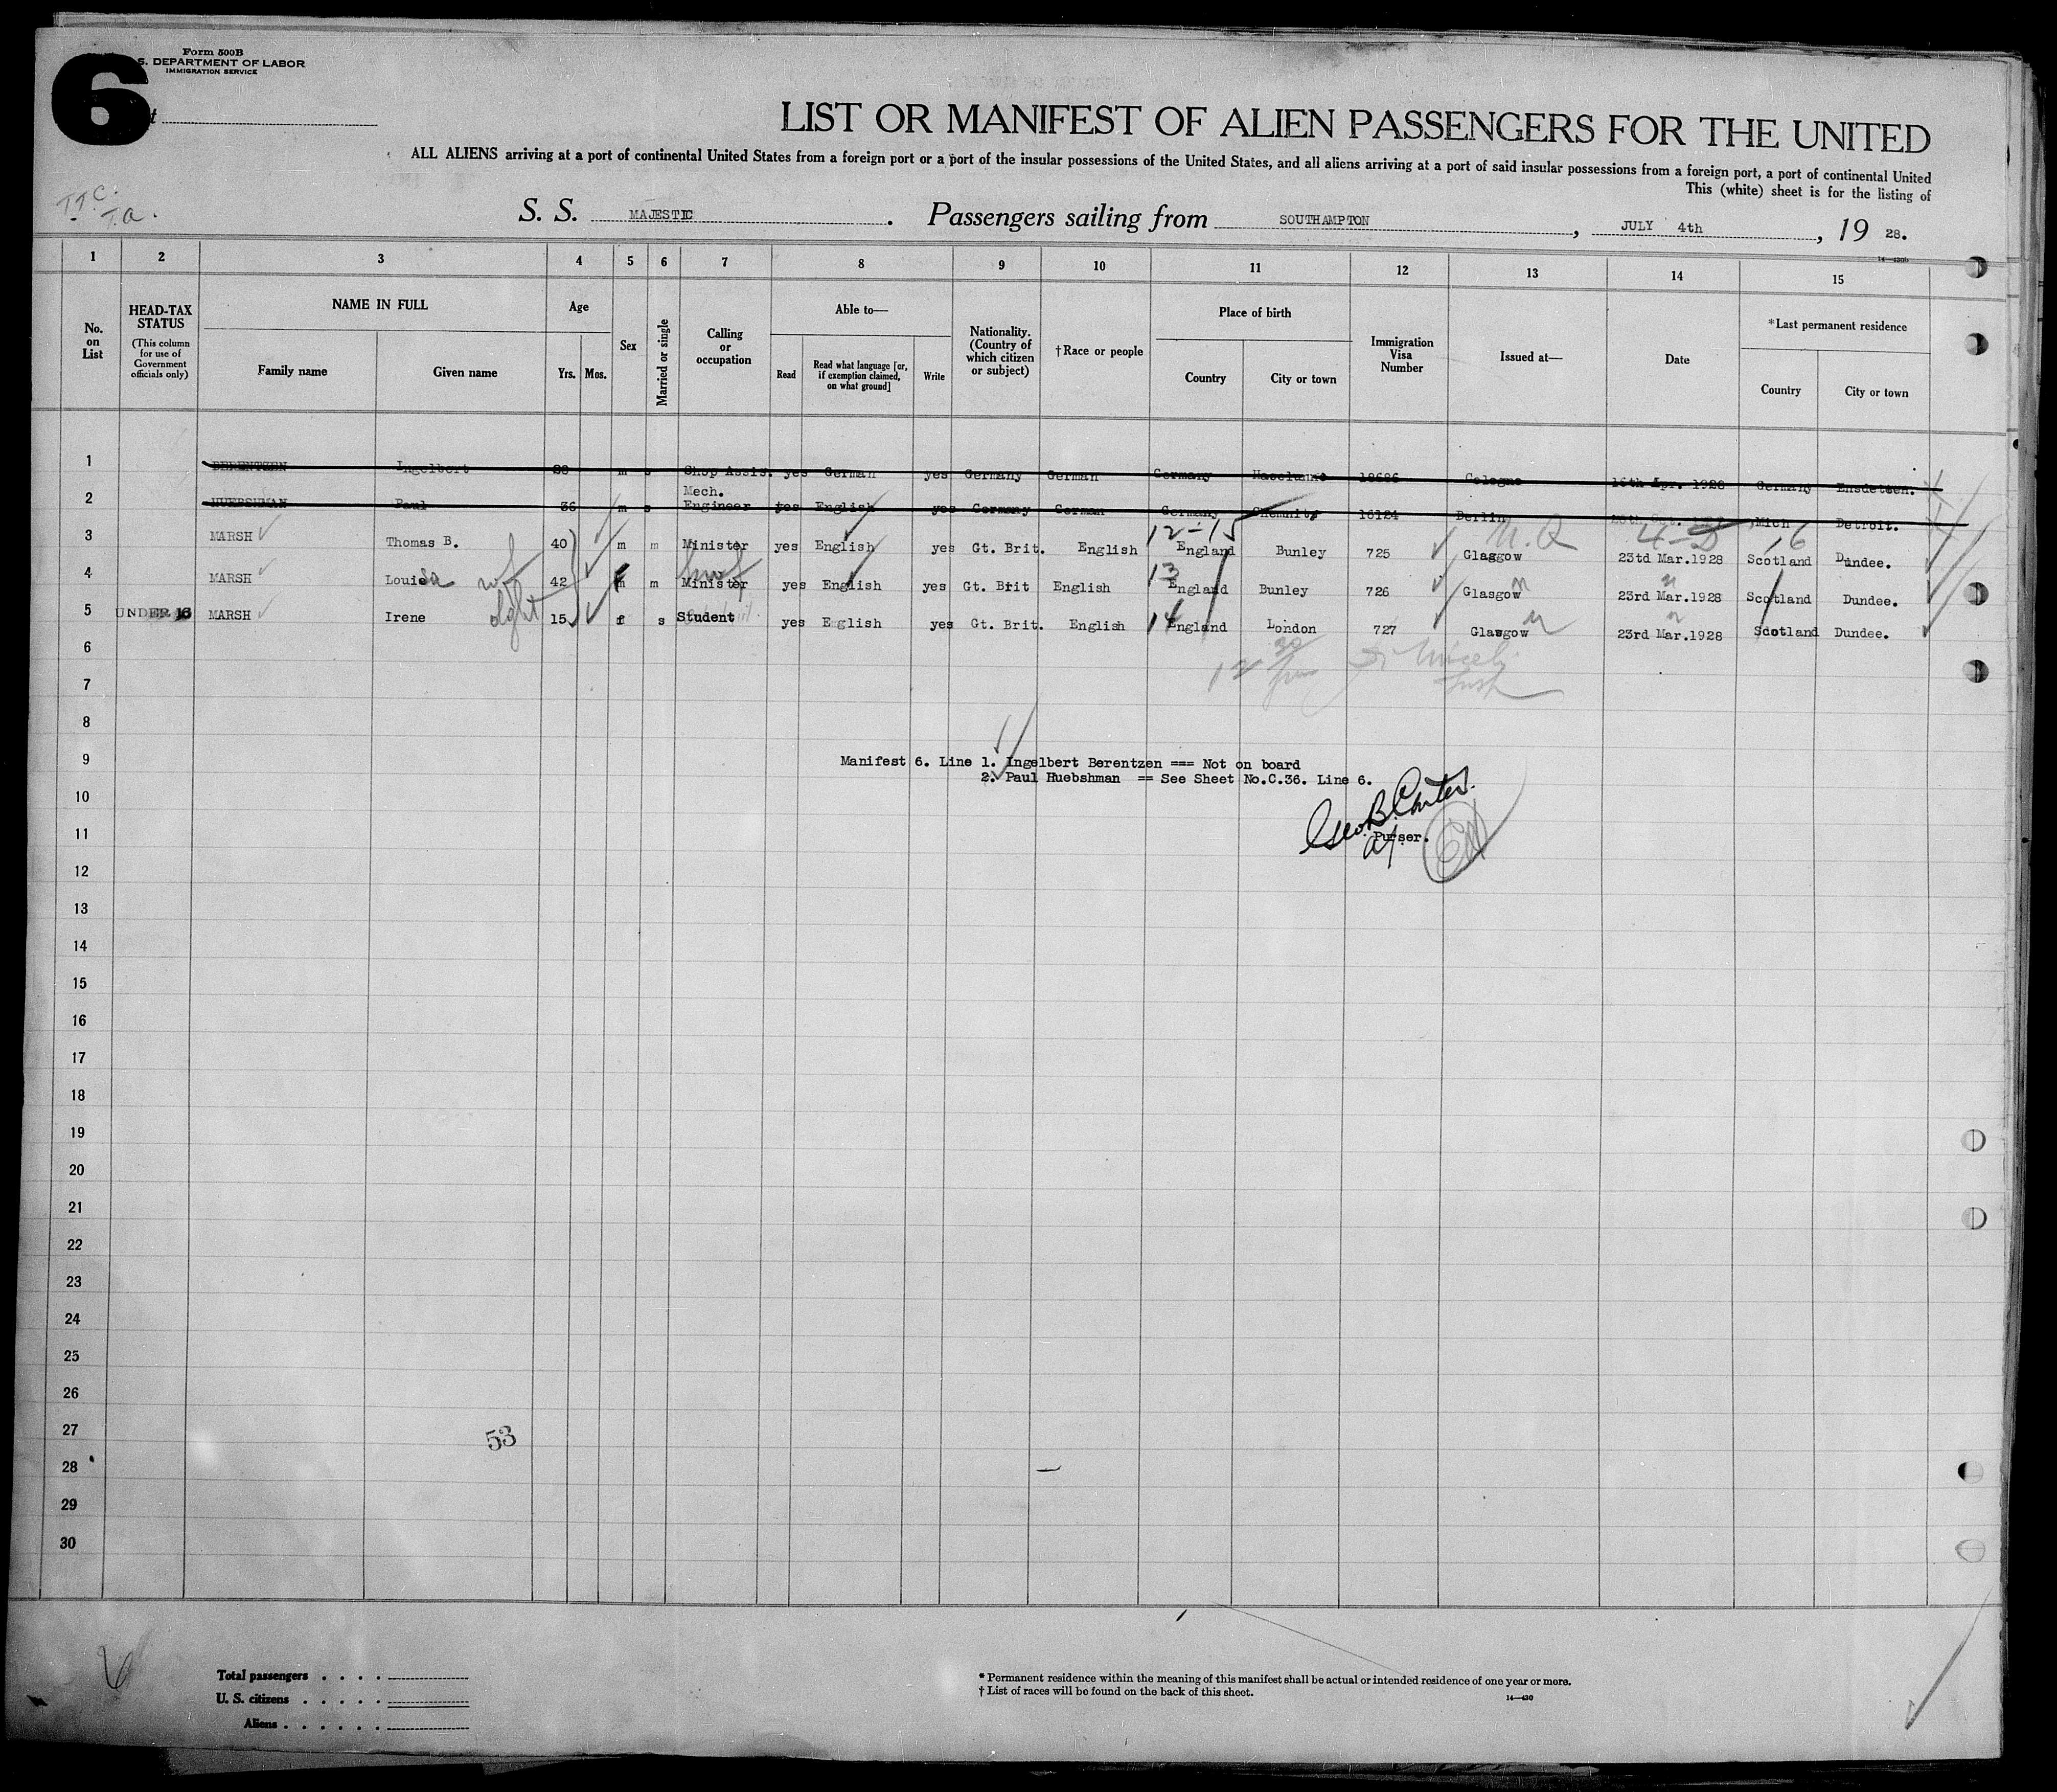 6
Form 500B
S. DEPARTMENT OF LABOR
IMMIGRATION SERVICE
t
LIST OR MANIFEST OF ALIEN PASSENGERS FOR THE UNITED
ALL ALIENS arriving at a port of continental United States from a foreign port or a port of the insular possessions of the United States, and all aliens arriving at a port of said insular possessions from a foreign port, a port of continental United
This (white) sheet is for the listing of
S. S. MAJESTIC. Passengers sailing from SOUTHAMPTON, JULY 4th, 19 28.
1 2 3 4 5 6 7 8 9 10 11 12 13 14 15
No. on List
HEAD-TAX STATUS
(This column for use of Government officials only)
NAME IN FULL
Family name
Given name
Age
Yrs. Mos.
Sex
Married or single
Calling or occupation
Able to—
Read
Read what language [or, if exemption claimed, on what ground]
Write
Nationality. (Country of which citizen or subject)
†Race or people
Place of birth
Country
City or town
Immigration Visa Number
Issued at—
Date
*Last permanent residence
Country
City or town
1 BERENTZEN Ingelbert m s Shop Assis. yes German yes Germany German Germany 18686 Cologne 16th Apr. 1928 Germany Emsdeteen.
2 HUEBSHMAN Paul 36 m s Mech. Engineer yes English yes Germany German Germany Chemnitz 16124 Berlin Mich Detroit.
12-15 4-D 16
3 MARSH Thomas B. 40 m m Minister yes English yes Gt. Brit. English England Bunley 725 Glasgow 23td Mar.1928 Scotland Dundee.
4 MARSH Louisa wf 42 f m Minister yes English yes Gt. Brit English 13 England Bunley 726 Glasgow 23rd Mar.1928 Scotland Dundee.
5 UNDER 16 MARSH Irene 15 f s Student yes English yes Gt. Brit. English 14 England London 727 Glasgow 23rd Mar.1928 Scotland Dundee.
6
7
8
9 Manifest 6. Line 1. Ingelbert Berentzen === Not on board
2. Paul Huebshman == See Sheet No.C.36. Line 6.
10
Geo. B. Carter.
11 Purser.
12
13
14
15
16
17
18
19
20
21
22
23
24
25
26
27 53
28
29
30
6
Total passengers
U. S. citizens
Aliens
* Permanent residence within the meaning of this manifest shall be actual or intended residence of one year or more.
† List of races will be found on the back of this sheet.
14—430